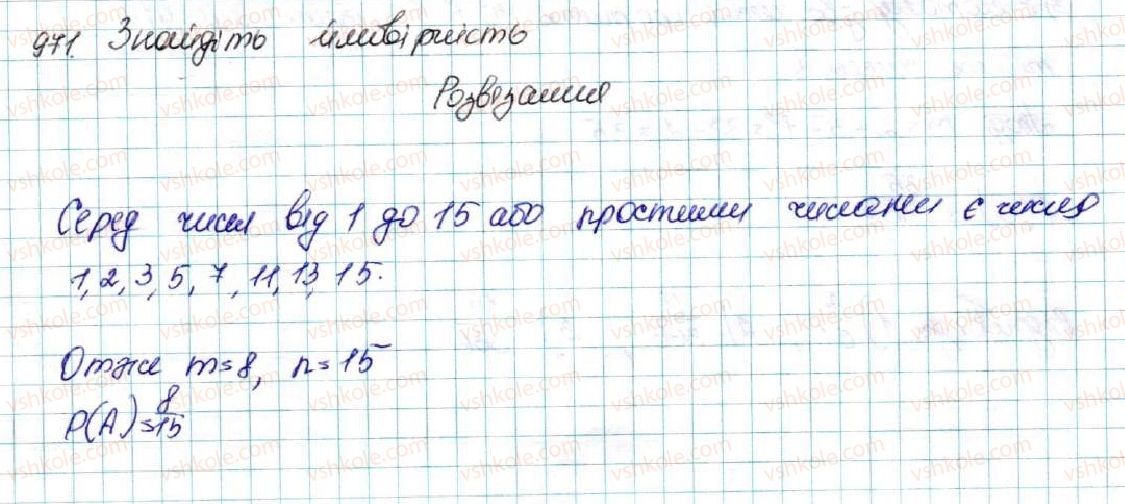 971. Знайдіть ймовірність
Розвязання
Серед чисел від 1 до 15 або простими числами є числа
1, 2, 3, 5, 7, 11, 13, 15.
Отже m=8, n=15
P(A)=8/15